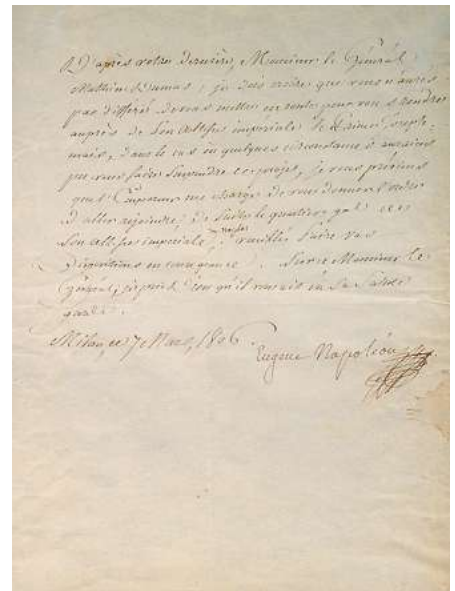 D'après votre dernière, Monsieur le Général
Mathieu Dumas, je dois croire que vous n'aurés
pas différé de vous mettre en route pour vous rendre
auprès de Son Altesse impériale le Prince Joseph.
mais, dans le cas où quelques circonstances auraient
pu vous faire suspendre ce projet, je vous préviens
que l'Empereur me charge de vous donner l'ordre
d'aller rejoindre, de suite, le quartier gal de
Son Altesse impériale. veuillés faire vos
dispositions en conséquence. Sur ce Monsieur le
Général, je prie Dieu qu'il vous ait en Sa Sainte
garde.
Milan, ce 7 Mars, 1806
Eugène Napoléon